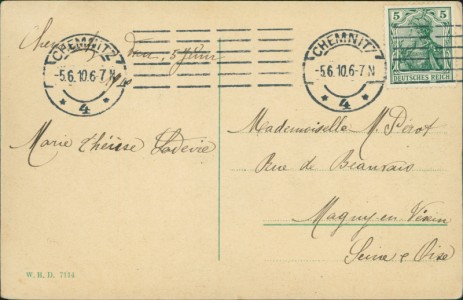 CHEMNITZ
-5.6.10.6-7N
* 4 *
CHEMNITZ
-5.6.10.6-7N
* 4 *
5 5
DEUTSCHES REICH
den, 5 Juin
Marie Thérèse
Mademoiselle M.
Rue de Beauvais
Magny-en-Vexin
Seine & Oise
W. R. D. 7114